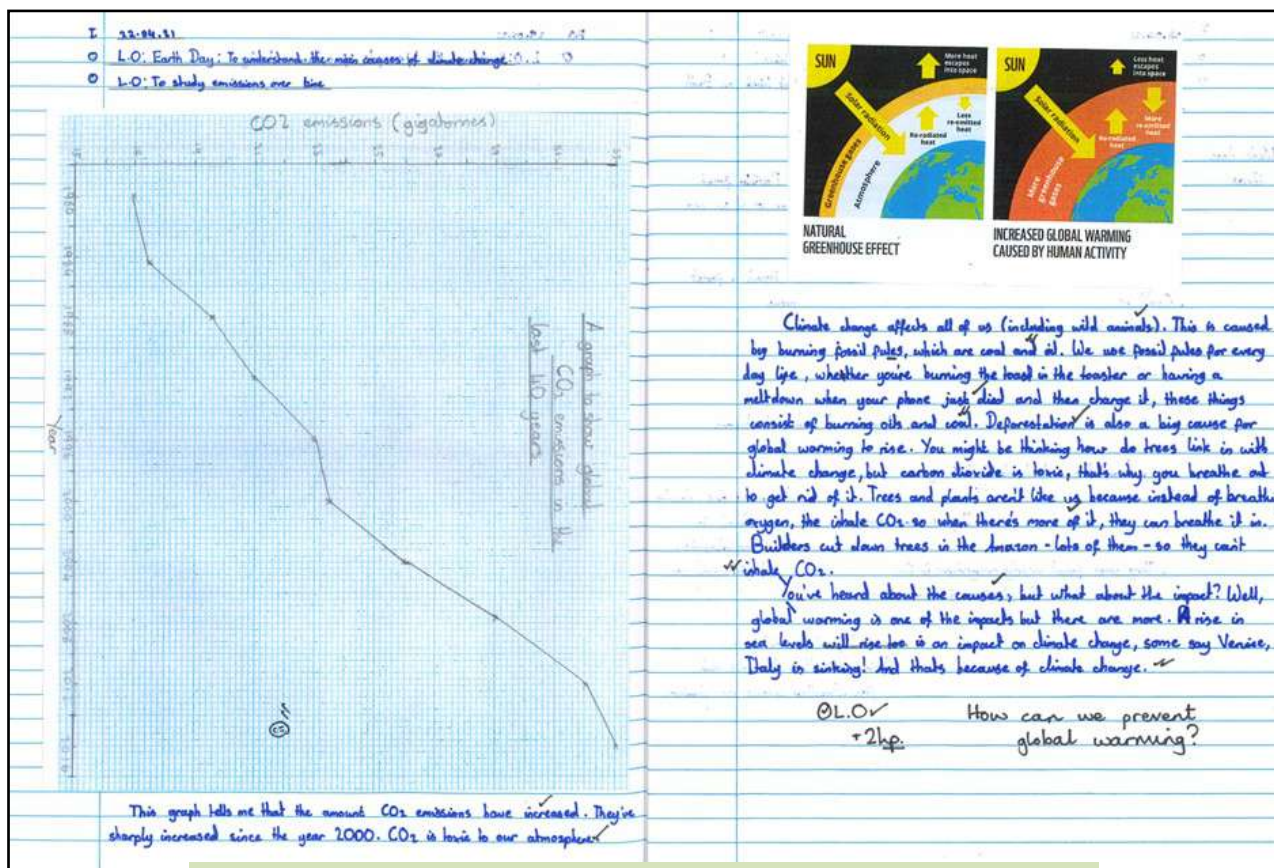 I 22.04.21
O L.O: Earth Day: To understand the main causes of climate change.
O L.O: To study emissions over time
CO2 emissions (gigatonnes)
Year
A graph to show global
CO2 emissions in the
last 40 years
This graph tells me that the amount CO2 emissions have increased. They've
sharply increased since the year 2000. CO2 is toxic to our atmosphere
SUN
More heat
escapes
into space
Solar radiation
Less
re-emitted
heat
Re-radiated
heat
Greenhouse gases
Atmosphere
NATURAL
GREENHOUSE EFFECT
SUN
Less heat
escapes
into space
Solar radiation
More
re-emitted
heat
Re-radiated
heat
More
greenhouse
gases
INCREASED GLOBAL WARMING
CAUSED BY HUMAN ACTIVITY
Climate change affects all of us (including wild animals). This is caused
by burning fossil fules, which are coal and oil. We use fossil fules for every
day life, whether you're burning the toast in the toaster or having a
meltdown when your phone just died and then charge it, these things
consist of burning oils and coal. Deforestation is also a big cause for
global warming to rise. You might be thinking how do trees link in with
climate change, but carbon dioxide is toxic, that's why you breathe out
to get rid of it. Trees and plants aren't like us because instead of breath
oxygen, the inhale CO2 so when there's more of it, they can breathe it in.
Builders cut down trees in the Amazon - lots of them - so they can't
inhale CO2.
You've heard about the causes, but what about the impact? Well,
global warming is one of the impacts but there are more. A rise in
sea levels will rise too is an impact on climate change, some say Venice,
Italy is sinking! And thats because of climate change.
L.O
+2hp.
How can we prevent
global warming?